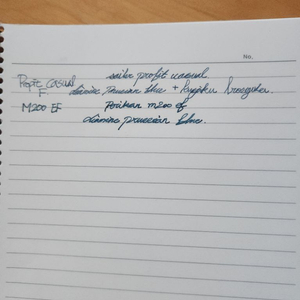 No.
sailor profit casual
Profit Casual
F
diamine prussian blue + kyoku
M200 EF
Pelikan m200 ef
diamine prussian blue.